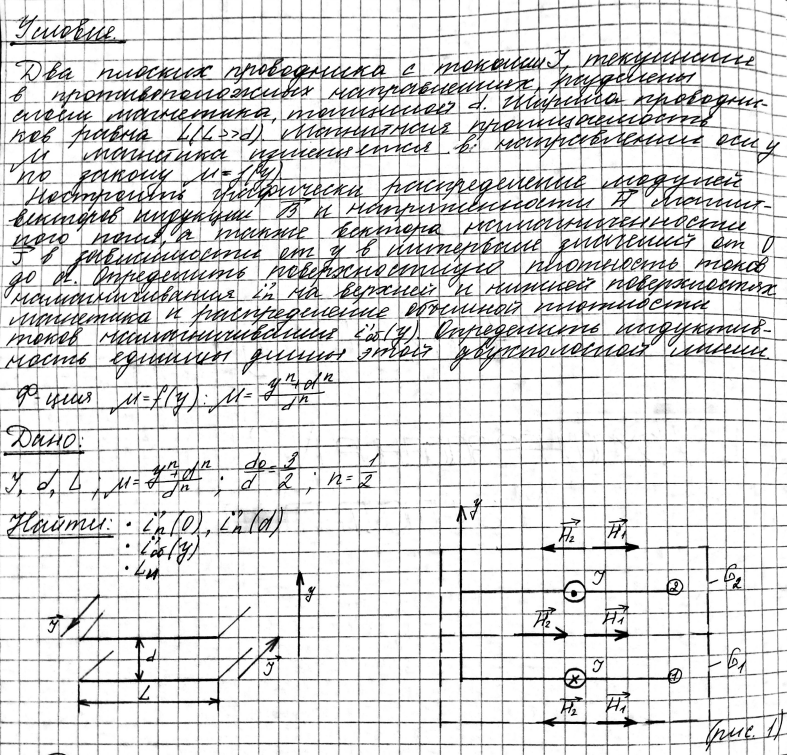 Условие.
Два плоских проводника с токами I, текущими
в противоположных направлениях, разделены
слоем магнетика толщиной d. Ширина проводни-
ков равна L (L>>d). Магнитная проницаемость
μ магнетика изменяется в направлении оси y
по закону μ=f(y).
Построить графически распределение модулей
векторов индукции B⃗ и напряженности H⃗ магнит-
ного поля, а также вектора намагниченности
J⃗ в зависимости от y в интервале значений от 0
до d. Определить поверхностную плотность токов
намагничивания i'п на верхней и нижней поверхностях
магнетика и распределение объемной плотности
токов намагничивания i'об(y). Определить индуктив-
ность единицы длины этой двухполосной линии.
Ф-ция μ=f(y): μ= (yⁿ+dⁿ)/dⁿ
Дано:
I, d, L; μ= (yⁿ+dⁿ)/dⁿ; d₀/d = 3/2; n= 1/2
Найти: • i'п(0), i'п(d)
• i'об(y)
• Lн
I⃗ d L I⃗ y
y
H⃗₂ H⃗₁
I ② G₂
H⃗₂ H⃗₁
I ① G₁
H⃗₂ H⃗₁
(рис. 1)